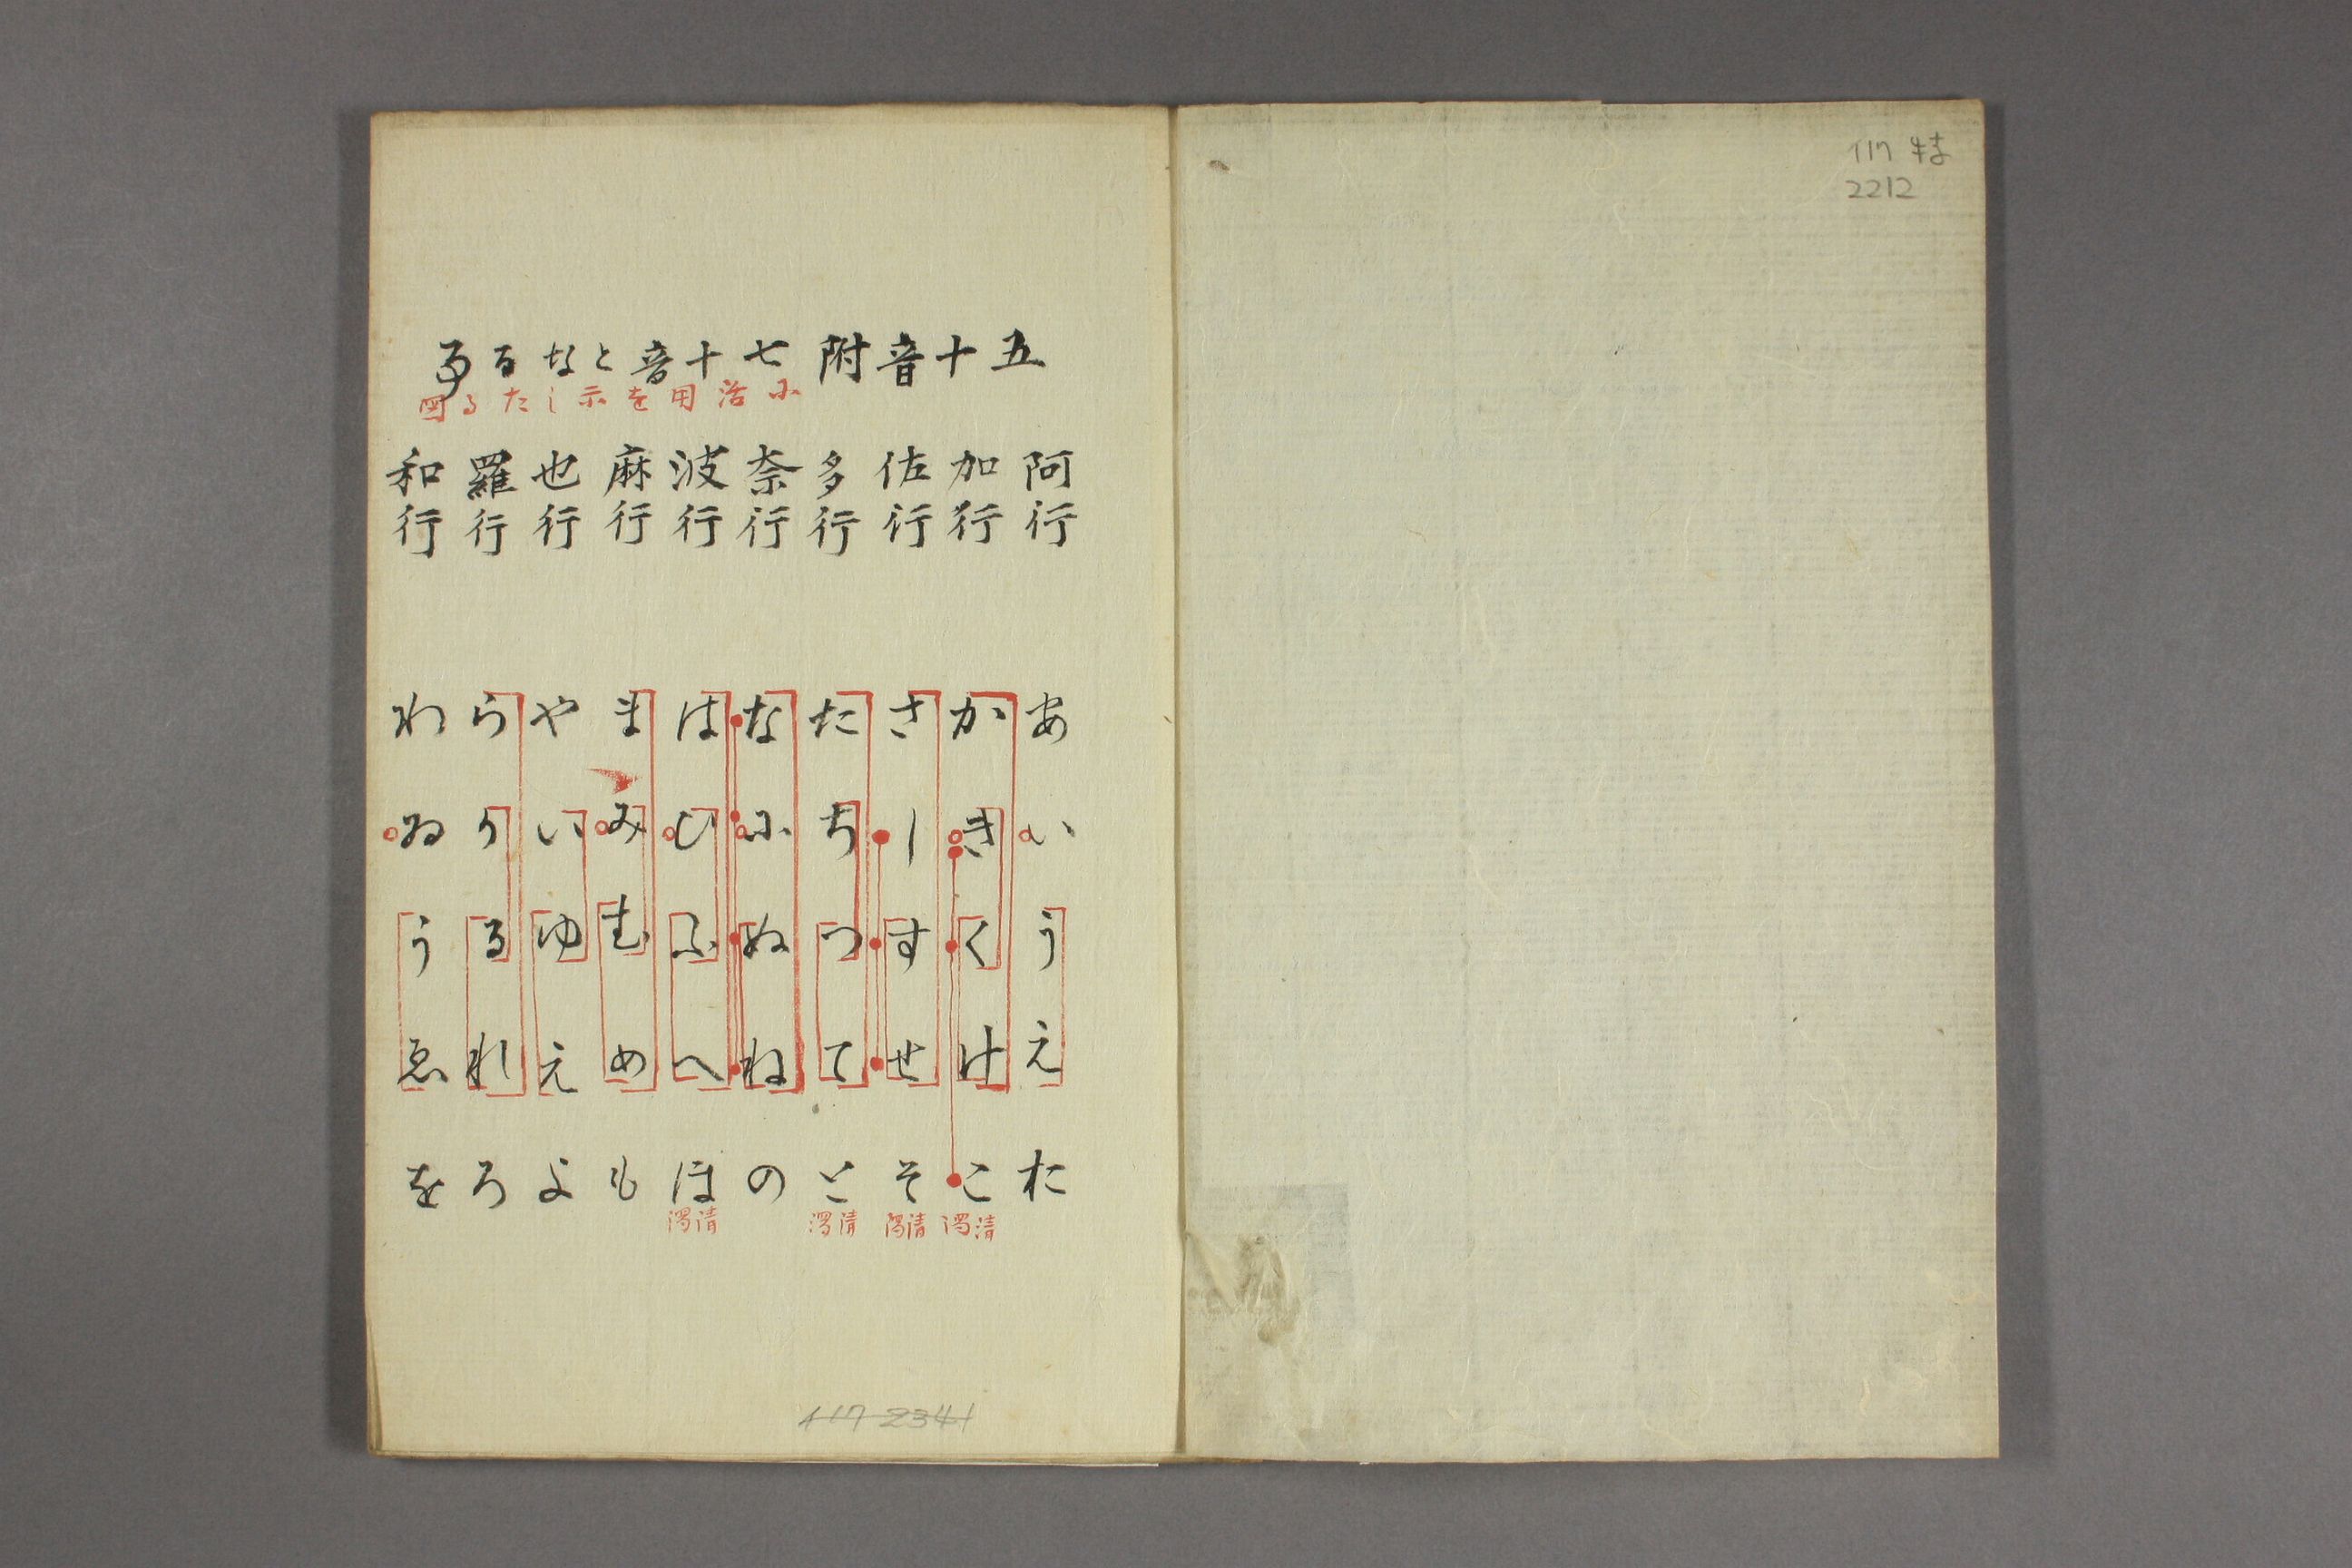 117 特
2212
五十音附七十音となる事
に活用を示したる図
阿行 あいうえお
加行 かきくけこ 清濁
佐行 さしすせそ 清濁
多行 たちつてと 清濁
奈行 なにぬねの
波行 はひふへほ 清濁
麻行 まみむめも
也行 やいゆえよ
羅行 らりるれろ
和行 わゐうゑを
117-2341